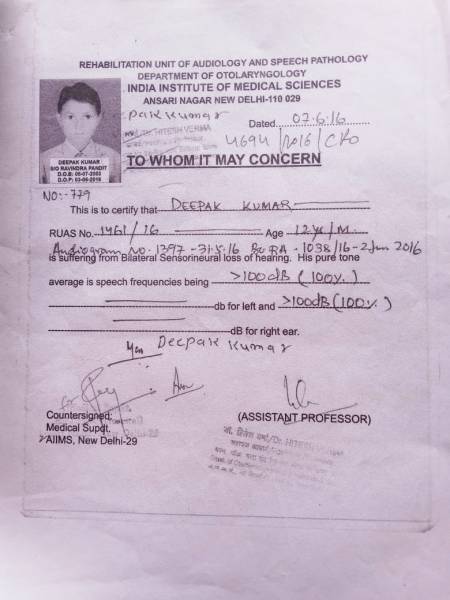 REHABILITATION UNIT OF AUDIOLOGY AND SPEECH PATHOLOGY
DEPARTMENT OF OTOLARYNGOLOGY
INDIA INSTITUTE OF MEDICAL SCIENCES
ANSARI NAGAR NEW DELHI-110 029
Dated 07.6.16
HITESH VERMA
4694/2016/
DEEPAK KUMAR
S/O RAVINDRA PANDIT
TO WHOM IT MAY CONCERN
NO:-779
This is to certify that DEEPAK KUMAR
RUAS No. 1461/16 Age 12 yr/M
Audiogram No. 1397-31.5.16 BERA-1038/16-2 Jun 2016
is suffering from Bilateral Sensorineural loss of hearing. His pure tone
average is speech frequencies being >100dB (100%)
db for left and >100dB (100%)
dB for right ear.
Deepak Kumar
Countersigned
Medical Supdt.
AIIMS, New Delhi-29
(ASSISTANT PROFESSOR)